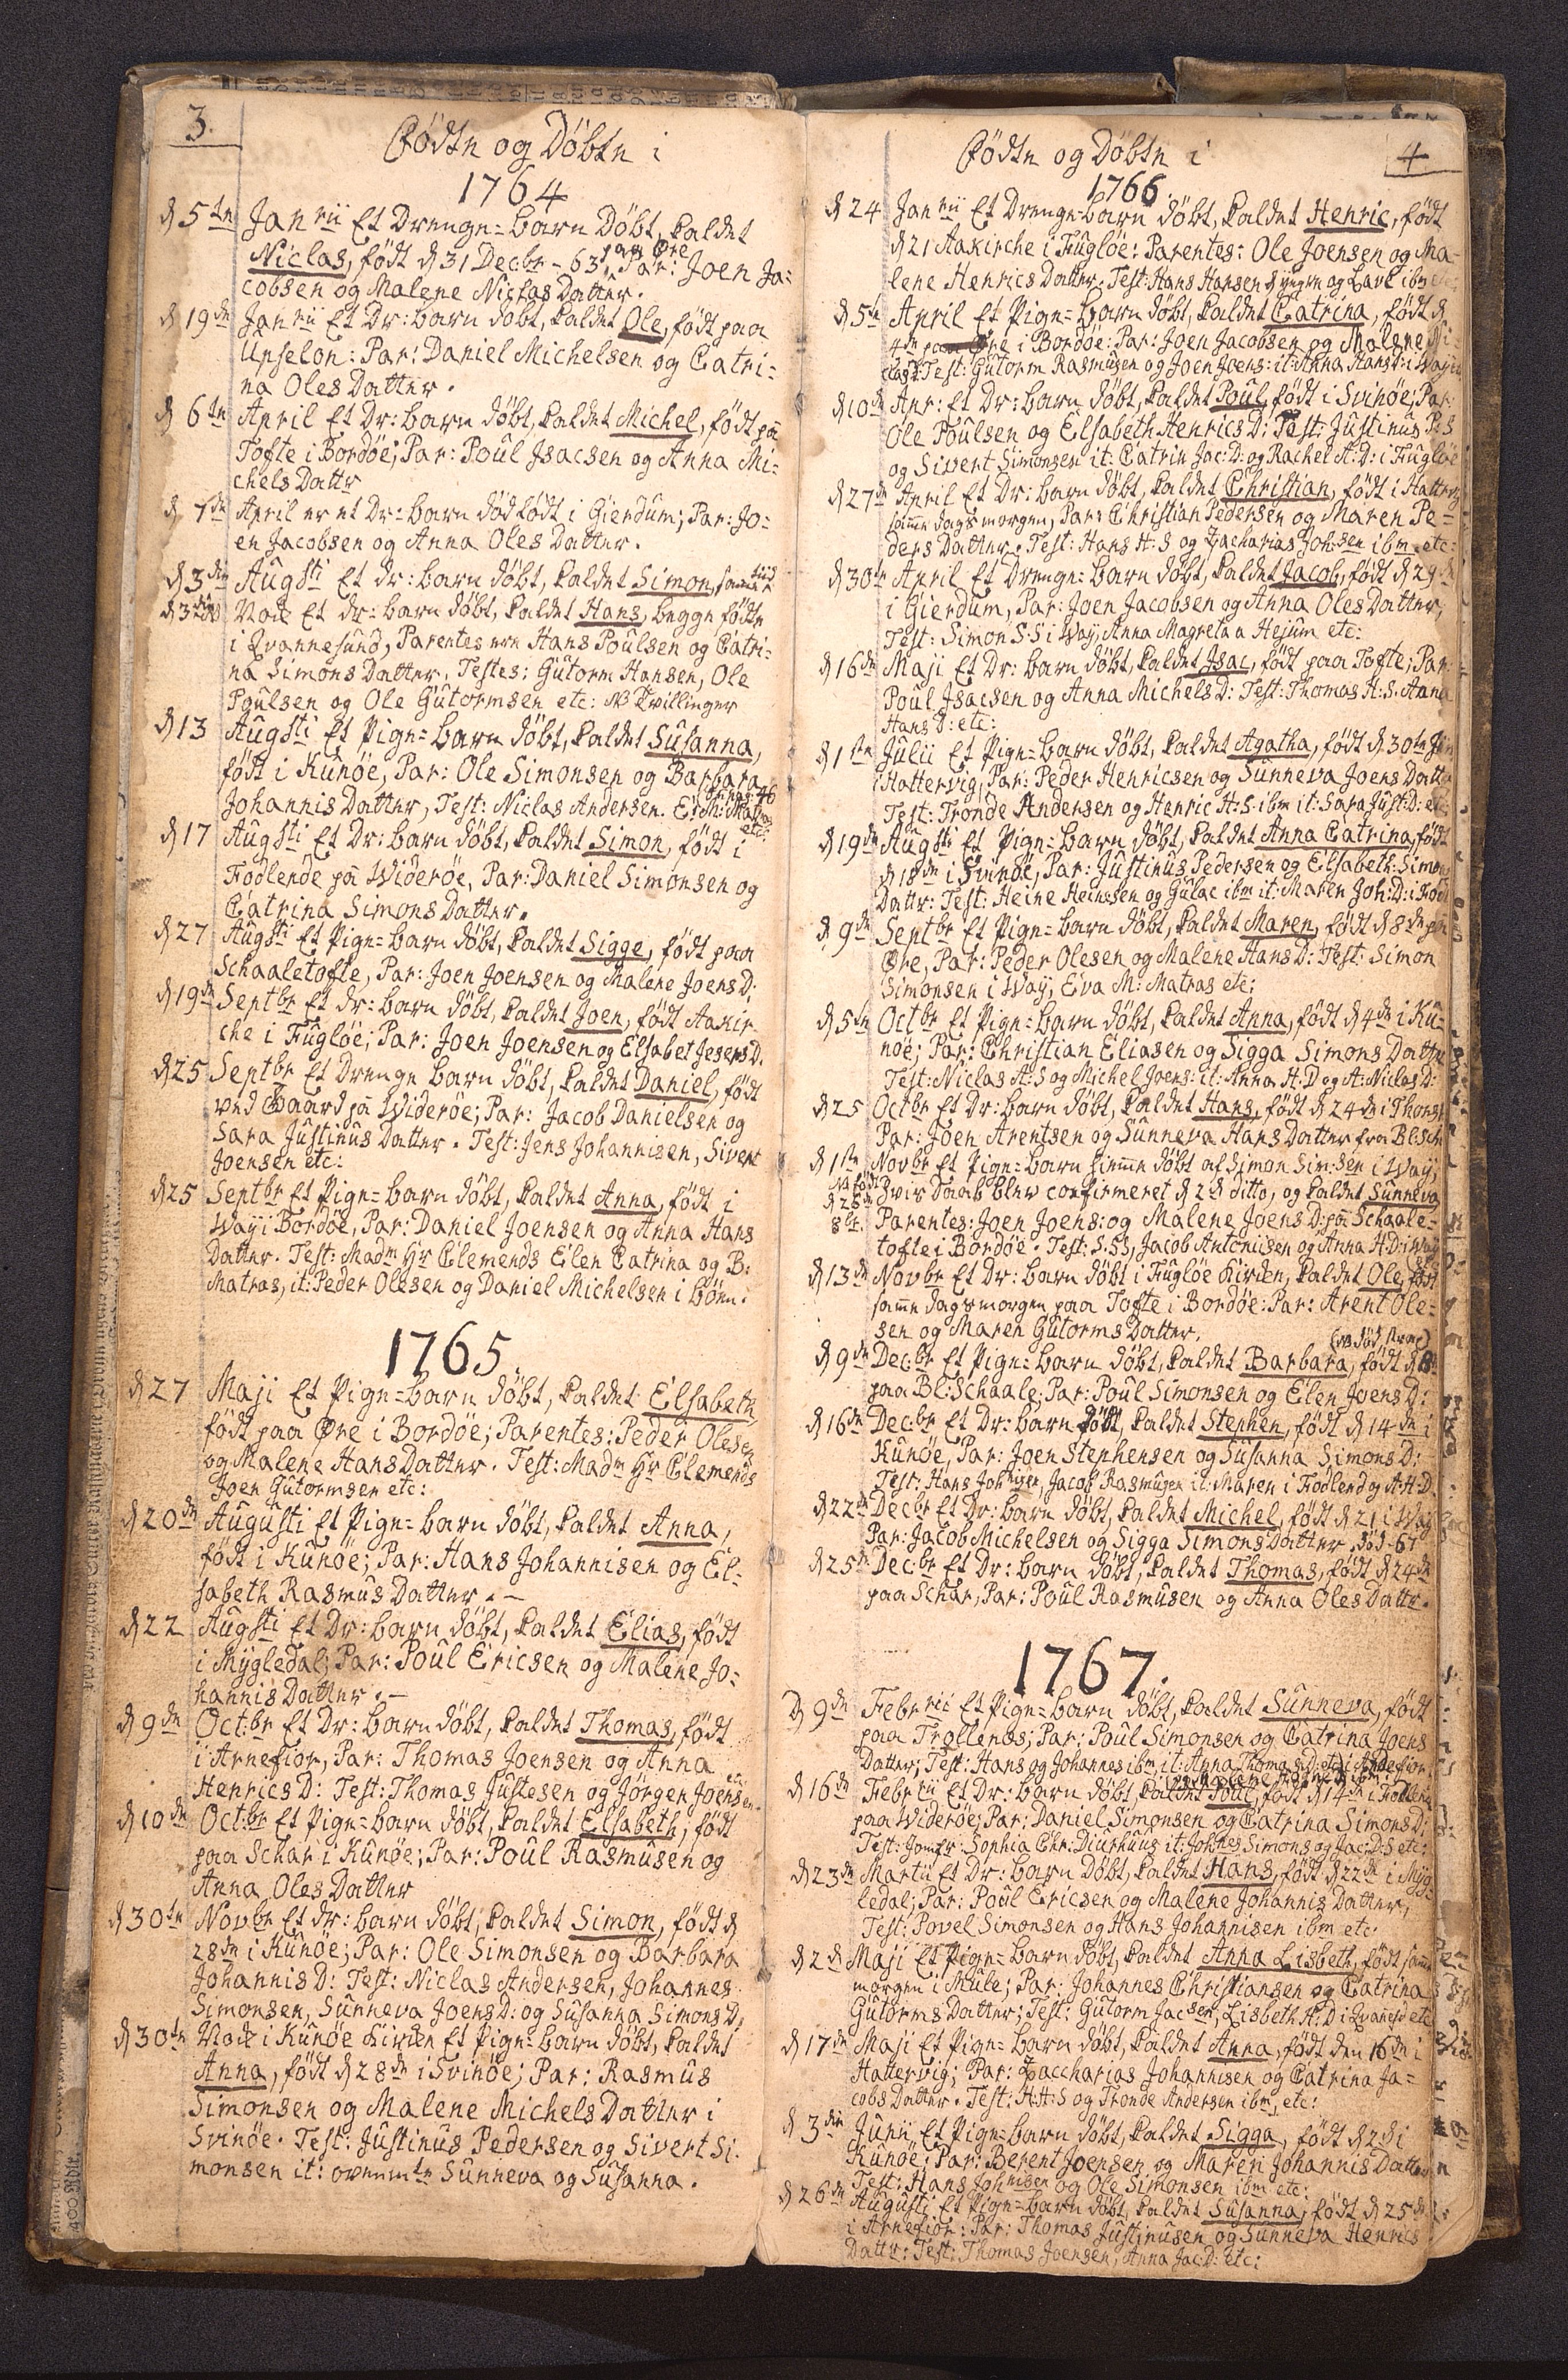 3.
Födte og Döbte i
1764
d 5te Janrii Et Drenge-barn Döbt, kaldet
Niclas, födt d 31 Decbr - 63, paa Öre Par: Joen Ja=
cobsen og Malene Niclas Datter.
d 19de Janrii Et Dr: barn döbt, kaldet Ole, födt paa
Unselon: Par: Daniel Michelsen og Catri=
na Oles Datter.
d 6te April Et Dr: barn döbt, kaldet Michel, födt på
Tofte i Bordöe; Par: Poul Isacsen og Anna Mi=
chels Dattr
April er et Dr: barn dödfödt i Gierdum; Par: Jo=
en Jacobsen og Anna Oles Datter.
d 3die Augsti Et dr: barn döbt, kaldet Simon,
Nok Et dr: barn döbt, kaldet Hans, begge födte
i Qvannesund, Parentes ere Hans Poulsen og Catri=
na Simons Datter, Testes: Gutorm Hansen, Ole
Poulsen og Ole Gutormsen etc: NB Tvillinger
d 13 Augsti Et Pige=barn döbt, kaldet Susanna,
födt i Kunöe, Par: Ole Simonsen og Barbara
Johannis Datter, Test: Niclas Andersen. E: M: Matras etc:
d 17 Augsti Et Dr: barn döbt, kaldet Simon, födt i
Fodlende på Wideröe, Par: Daniel Simonsen og
Catrina Simons Datter.
d 27 Augsti Et Pige=barn döbt, kaldet Sigge, födt paa
Schaaletofte, Par: Joen Joensen og Malene Joens D:
d 19de Septbr Et dr: barn döbt, kaldet Joen, födt Aakir=
che i Fuglöe; Par: Joen Joensen og Elsabet Jesers D.
d 25 Septbr Et Drenge barn döbt, kaldet Daniel, födt
ved Gaard på Wideröe; Par: Jacob Danielsen og
Sara Justinus Datter. Test: Jens Johannisen, Sivert
Joensen etc:
d 25 Septbr Et Pige=barn döbt, kaldet Anna, födt i
Way i Bordöe, Par: Daniel Joensen og Anna Hans
Datter. Test: Madm Hr Clemends Elen Catrina og B:
Matras, it: Peder Olesen og Daniel Michelsen i Börn.
1765.
d 27 Maji Et Pige=barn döbt, kaldet Elsabeth,
födt paa Öre i Bordöe; Parentes: Peder Olesen
og Malene Hans Datter. Test: Madm Hr Clemends
Joen Gutormsen etc:
d 20de Augusti Et Pige=barn döbt, kaldet Anna,
födt i Kunöe; Par: Hans Johannisen og El=
sabeth Rasmus Datter. -
d 22 Augsti Et Dr: barn döbt, kaldet Elias, födt
i Mygledal; Par: Poul Ericsen og Malene Jo=
hannis Datter. -
d 9de Octbr Et Dr: barn döbt, kaldet Thomas, födt
i Arnefior, Par: Thomas Joensen og Anna
Henrics D: Test: Thomas Justesen og Jörgen Joensen etc
d 10de Octbr Et Pige=barn döbt, kaldet Elsabeth, födt
paa Schar i Kunöe; Par: Poul Rasmusen og
Anna Oles Datter
d 30te Novbr Et dr: barn döbt, kaldet Simon, födt d
28de i Kunöe; Par: Ole Simonsen og Barbara
Johannis D: Test: Niclas Andersen, Johannes
Simonsen, Sunneva Joens D: og Susanna Simons D,
d 30te Nok i Kunöe Kirke Et Pige=barn döbt, kaldet
Anna, födt d 28de i Svinöe; Par: Rasmus
Simonsen og Malene Michels Datter i
Svinöe. Test: Justinus Pedersen og Sivert Si=
monsen it: ovennte Sunneva og Susanna.
4
Födte og Döbte i
1766
d 24 Janrii Et Drenge=barn döbt, kaldet Henric, födt
d 21 Aakirche i Fuglöe: Parentes: Ole Joensen og Ma=
lene Henrics Datter. Test: Hans Hansen d yngre og ibm etc
d 5te April Et Pige=barn döbt, kaldet Catrina, födt d
4de i Bordöe: Par: Joen Jacobsen og Malene Ni=
clas D: Test: Gutorm Rasmusen og Joen Joens: it: Anna Hans D: i Way etc
d 10de Apr: Et Dr: barn döbt, kaldet Poul, födt i Svinöe; Par:
Ole Poulsen og Elsabeth Henrics D: Test: Justinus P: S
og Sivert Simonsen it: Catrin Jac: D: og Rachel A: D: i Fuglöe
d 27de April Et Dr: barn döbt, kaldet Christian, födt i Hattervig
samme dags morgen, Par: Christian Pedersen og Maren Pe=
ders Datter. Test: Hans H: S og Zacharias Joh:sen ibm. etc:
d 30te April Et Drenge=barn döbt, kaldet Jacob, födt d 29de
i Gierdum, Par: Joen Jacobsen og Anna Oles Datter,
Test: Simon S:S i Way, Anna Magreta a Hejum etc:
d 16de Maji Et Dr: barn döbt, kaldet Isac, födt paa Tofte; Par:
Poul Isacsen og Anna Michels D: Test: Thomas H: S. Anna
Hans D: etc:
d 1ste Julii Et Pige=barn döbt, kaldet Agatha, födt d 30te Jun
i Hattervig, Par: Peder Henricsen og Sunneva Joens Datter
Test: Tronde Andersen og Henric H: S. ibm it: Sara Just: D: etc
d 19de Augsti Et Pige=barn döbt, kaldet Anna Catrina, födt
d 18de i Svinöe, Par: Justinus Pedersen og Elsabeth Simons
Dattr: Test: Heine Heinesen og Gulac ibm it: Maren Joh: D: i
d 9de Septbr Et Pige=barn döbt, kaldet Maren, födt d 8de på
Öre, Par: Peder Olesen og Malene Hans D: Test: Simon
Simonsen i Way, Eva M: Matras etc:
d 5te Octbr Et Pige=barn döbt, kaldet Anna, födt d 4de i Ku=
nöe; Par: Christian Eliasen og Sigga Simons Datter
Test: Niclas A: S og Michel Joens: it: Anna H: D og A: Niclas D:
d 25 Octbr Et Dr: barn döbt, kaldet Hans, födt d 24de i
Par: Joen Arentsen og Sunneva Hans Datter fra
d 1ste Novbr Et Pige=barn hiemme döbt af Simon Sim:sen i Way,
NB födt d 26de 8br. hvis Daab blev confirmeret d 2d ditto, og kaldet Sunneva,
Parentes: Joen Joens: og Malene Joens D: på Schaale=
tofte i Bordöe. Test: S:SS, Jacob Antonisen og Anna H. D: i Way
d 13de Novbr Et Dr: barn döbt i Fuglöe Kirke, kaldet Ole, födt
samme dags morgen paa Tofte i Bordöe: Par: Arent Ole=
sen og Maren Gutorms Datter.
d 9de Decbr Et Pige=barn döbt, kaldet Barbara, födt d 8
paa Bl: Schaale; Par: Poul Simonsen og Elen Joens D:
d 16de Decbr Et Dr: barn döbt, kaldet Stephen, födt d 14de i
Kunöe, Par: Joen Stephensen og Susanna Simons D:
Test: Hans Johnisen, Jacob Rasmusen it: Maren i Fodlend og A: H: D.
d 22de Decbr Et Dr: barn döbt, kaldet Michel, födt d 21 i Way
Par: Jacob Michelsen og Sigga Simons Datter. död - 67
d 25de Decbr Et Dr: barn döbt, kaldet Thomas, födt d 24de
paa Schar, Par: Poul Rasmusen og Anna Oles Dattr.
1767.
d 9de Febrii Et Pige=barn döbt, kaldet Sunneva, födt
paa Trollenes; Par: Poul Simonsen og Catrina Joens
Datter; Test: Hans og Johannes ibm it: Anna Thomas D:
d 16de Febrii Et Dr: barn döbt, kaldet Poul, födt d 14de i Fodlend
paa Wideröe; Par: Daniel Simonsen og Catrina Simons D:
Test: Jomfr: Sophia Chr: Diurhuus it: Johnes Simons og Jac: D:S etc:
d 23de Martii Et Dr: barn Döbt, kaldet Hans, födt d 22de i Myg=
ledal; Par: Poul Ericsen og Malene Johannis Datter,
Test: Povel Simonsen og Hans Johannisen ibm etc:
d 2d Maji Et Pige=barn döbt, kaldet Anna Lisbeth, födt samme
morgen i Mule; Par: Johannes Christiansen og Catrina
Gutorms Datter; Test: Gutorm Jacsen, Lisbeth H: D i etc
d 17de Maji Et Pige=barn döbt, kaldet Anna, födt den 16de i
Hattervig; Par: Zaccharias Johannisen og Catrina Ja=
cobs Datter. Test: H:H:S og Tronde Andersen ibm, etc:
d 3die Junii Et Pige=barn döbt, kaldet Sigga, födt d 2d i
Kunöe; Par: Berent Joensen og Maren Johannis Datter
Test: Hans Johnisen og Ole Simonsen ibm etc:
d 26de Augusti Et Pige=barn döbt, kaldet Susanna, födt d 25de
i Arnefior: Par: Thomas Justinusen og Sunneva Henrics
Dattr: Test: Thomas Joensen, Anna Jac: D: etc: